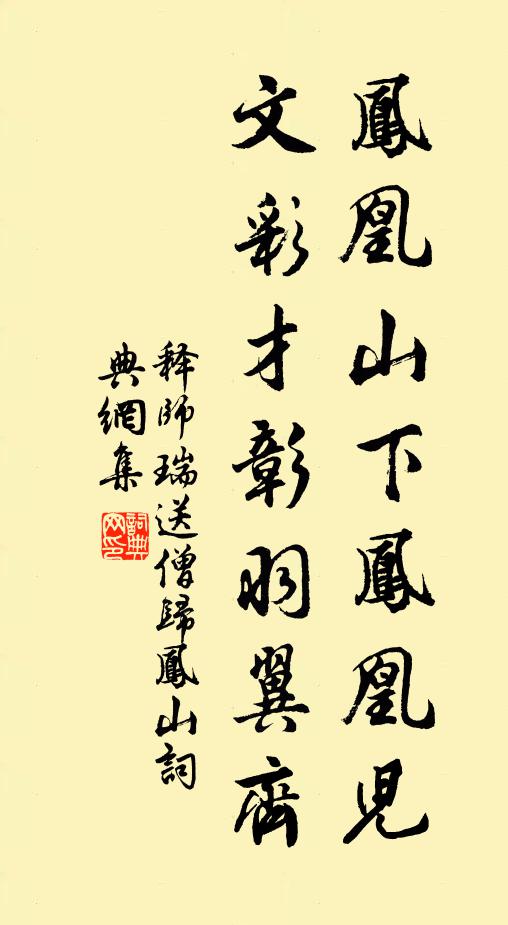 鳳凰山下鳳凰兒
文彩才彰羽翼齊
释師瑞送僧歸鳳山詞
典網集
詞典
网印